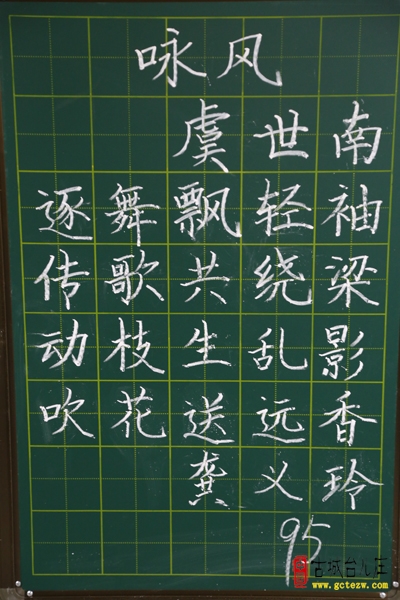 咏风
虞世南
逐舞飘轻袖
传歌共绕梁
动枝生乱影
吹花送远香
龚义玲
95
古城台儿庄
www.gctezw.com